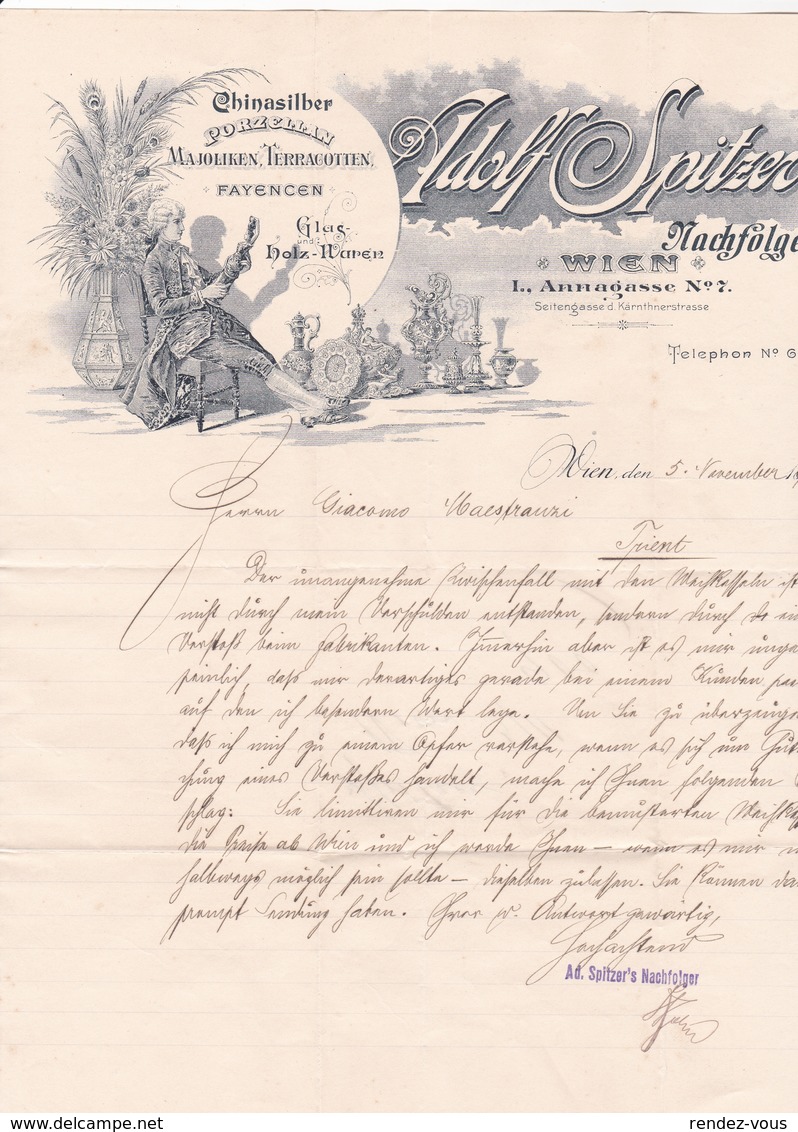 Chinasilber
PORZELLAN
MAJOLIKEN, TERRACOTTEN,
FAYENCEN
Glas-
und
Holz-Waren
Adolf Spitzer
Nachfolge
WIEN
I., Annagasse No 7.
Seitengasse d. Kärnthnerstrasse
Telephon No 6
Wien, den 5. November
Herrn Giacomo Maestranzi
Trient
Der unangenehme Zwischenfall mit den Weihkesseln ist
nicht durch mein Verschulden entstanden, sondern durch ein
Verstoß beim Fabrikanten. Immerhin aber ist es mir unge
peinlich, daß mir derartiges gerade bei einem Kunden pas
auf den ich besondern Wert lege. Um Sie zu überzeugen
daß ich mich zu einem Opfer verstehe, wenn es sich um Gut
chung eines Verstoßes handelt, mache ich Ihnen folgenden
schlag: Sie limitiren mir für die bemusterten Weihk
die Preise ab Wien und ich werde Ihnen – wenn es mir n
halbwegs möglich sein sollte – dieselben zulassen. Sie können da
prompt Sendung haben. Ihrer w. Antwort gewärtig,
Hochachtend
Ad. Spitzer's Nachfolger
www.delcampe.net
rendez-vous